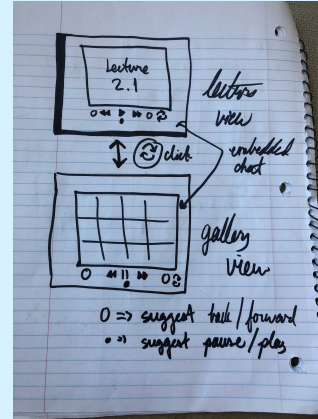 Lecture
2.1
lecture
view
click
embedded
chat
gallery
view
O => suggest back / forward
• => suggest pause / play